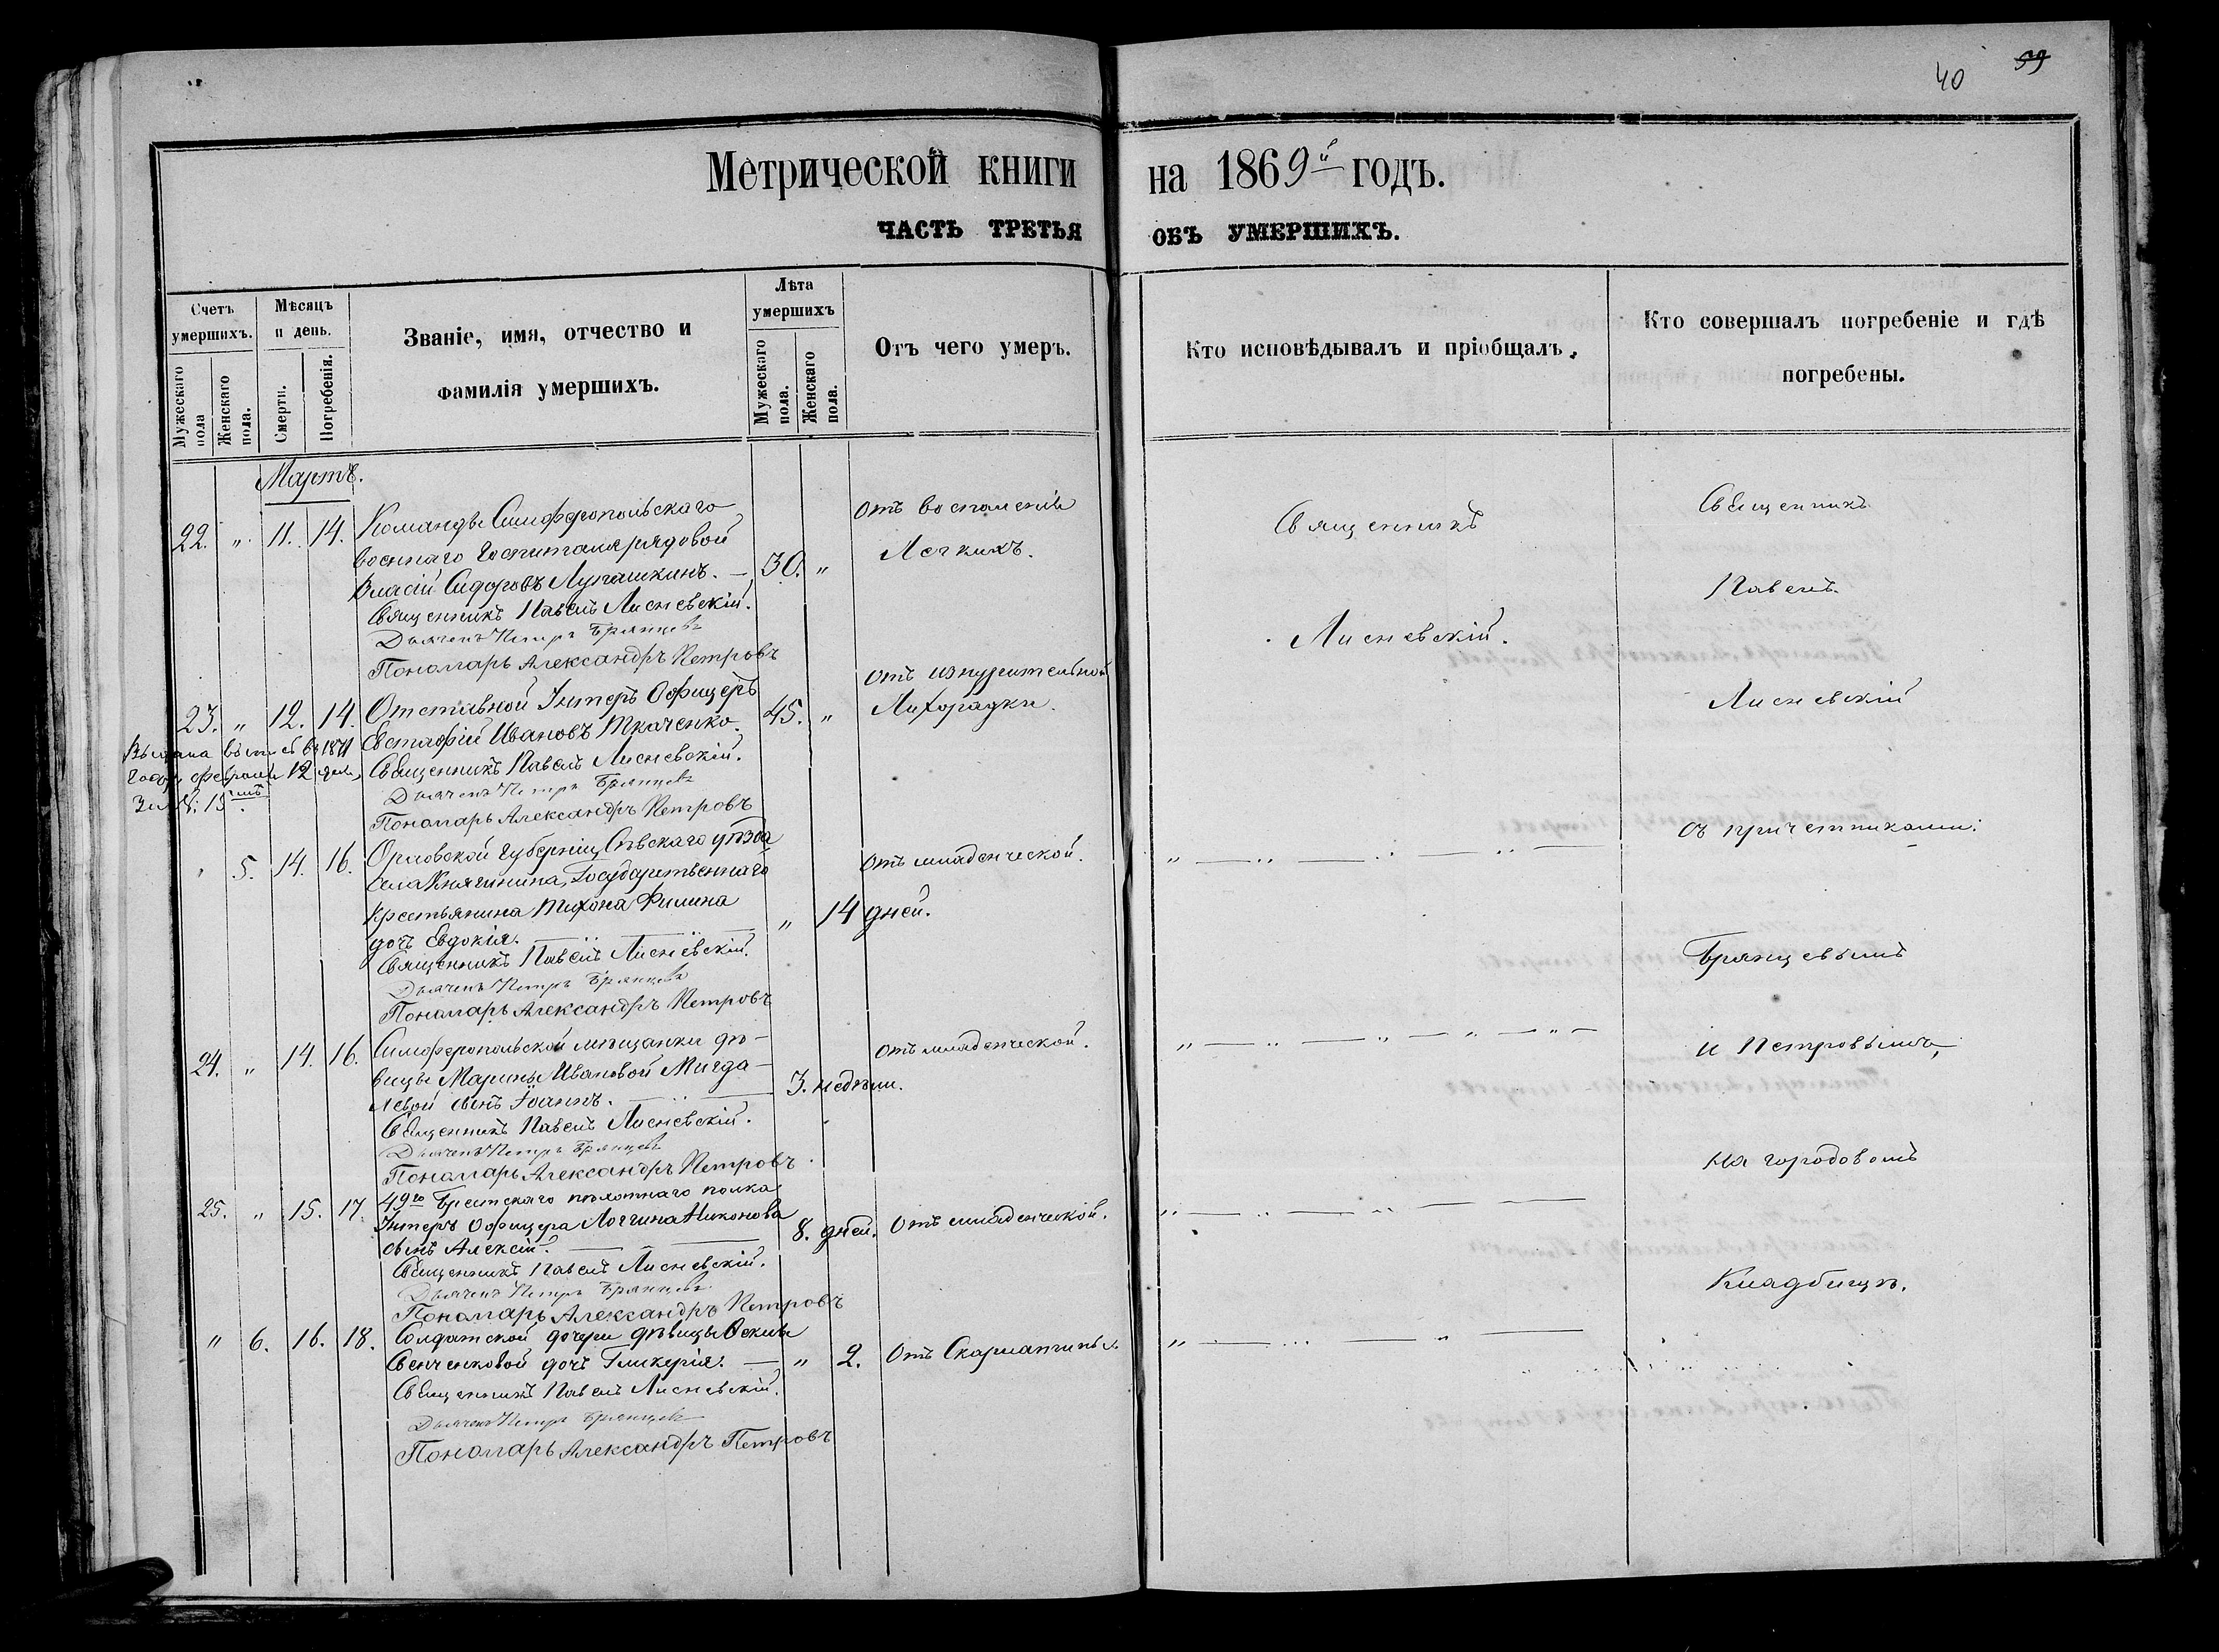 40 39
Метрической книги на 1869й годъ.
ЧАСТЬ ТРЕТЬЯ ОБЪ УМЕРШИХЪ.
Счетъ умершихъ.
Мужескаго пола
Женскаго пола.
Мѣсяцъ и день.
Смерти.
Погребенія.
Званіе, имя, отчество и
фамилія умершихъ.
Лѣта умершихъ
Мужескаго пола.
Женскаго пола.
Отъ чего умеръ.
Кто исповѣдывалъ и пріобщалъ.
Кто совершалъ погребеніе и гдѣ
погребены.
Мартъ.
22. " 11. 14. Команды Симферопольскаго
военнаго Госпиталя рядовой
Власій Сидоровъ Лупашкинъ. — 30. "
отъ воспаленія
Легкихъ.
Священникъ Павелъ Лисневскій.
Дьячекъ Петръ Брянцевъ
Пономарь Александръ Петровъ
23. " 12. 14. Отставной Унтеръ Офицеръ
Евстафій Ивановъ Ткаченко. 45. "
отъ изнурительной
Лихорадки.
Выдана въ 1871
года февраля 12 дня
за №. 15
Священникъ Павелъ Лисневскій.
Дьячекъ Петръ Брянцевъ
Пономарь Александръ Петровъ
" 5. 14. 16. Орловской Губерніи, Сѣвскаго уѣзда
села Княгинина, Государственнаго
крестьянина Тихона Филина
дочь Евдокія. " 14 дней.
отъ младенческой.
Священникъ Павелъ Лисневскій.
Дьячекъ Петръ Брянцевъ
Пономарь Александръ Петровъ
24. " 14. 16. Симферопольской мѣщанки дѣ-
вицы Марины Ивановой Мигда-
левой сынъ Іоаннъ. 3. недѣли.
отъ младенческой.
Священникъ Павелъ Лисневскій.
Дьячекъ Петръ Брянцевъ
Пономарь Александръ Петровъ.
25. " 15. 17. 49го Брестскаго пѣхотнаго полка
Унтеръ Офицера Логгина Никонова
сынъ Алексій. 8. дней. Отъ младенческой.
Священникъ Павелъ Лисневскій.
Дьячекъ Петръ Брянцевъ
Пономарь Александръ Петровъ
" 6. 16. 18. Солдатской дочери дѣвицы
дочь Гликерія. — " 2. Отъ Скарлатины.
Священникъ Павелъ Лисневскій.
Дьячекъ Петръ Брянцевъ
Пономарь Александръ Петровъ
Священникъ
Лисневскій.
Священникъ
Павелъ
Лисневскій
съ причетниками:
Брянцевымъ
и Петровымъ,
на городовомъ
Кладбищѣ.